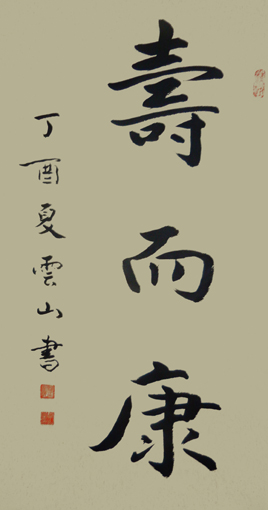 壽而康
丁酉夏雲山書